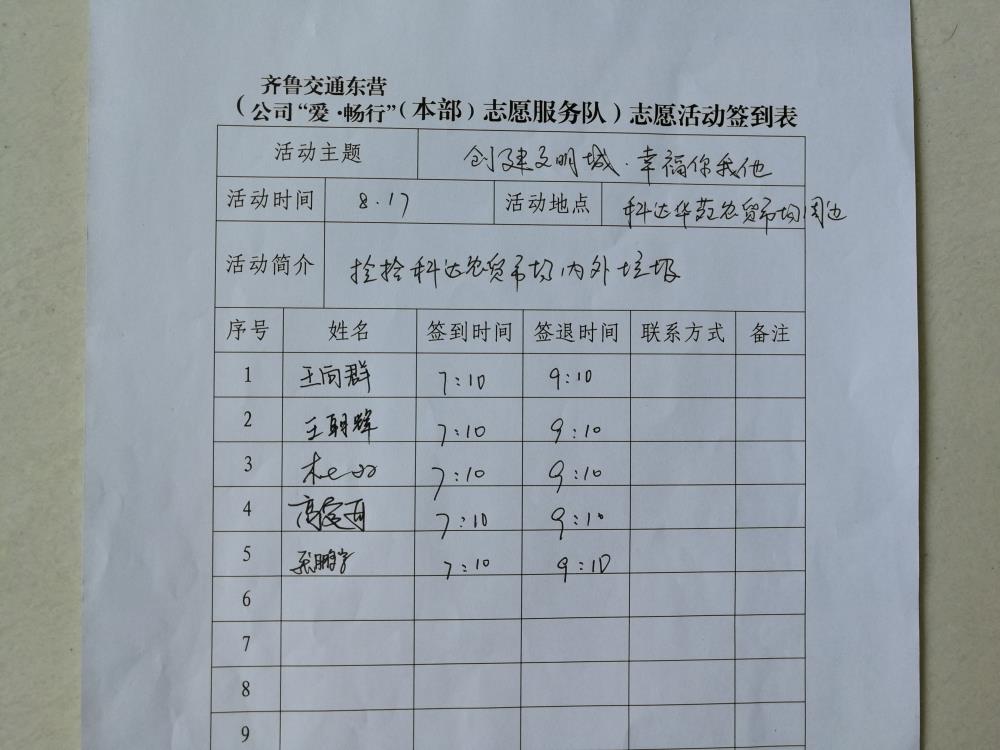 齐鲁交通东营
（公司“爱·畅行”（本部）志愿服务队）志愿活动签到表
活动主题 创建文明城·幸福你我他
活动时间 8.17 活动地点 科达华苑农贸市场周边
活动简介 捡拾科达农贸市场内外垃圾
序号 姓名 签到时间 签退时间 联系方式 备注
1 王向群 7:10 9:10
2 王朝辉 7:10 9:10
3 7:10 9:10
4 7:10 9:10
5 7:10 9:10
6
7
8
9